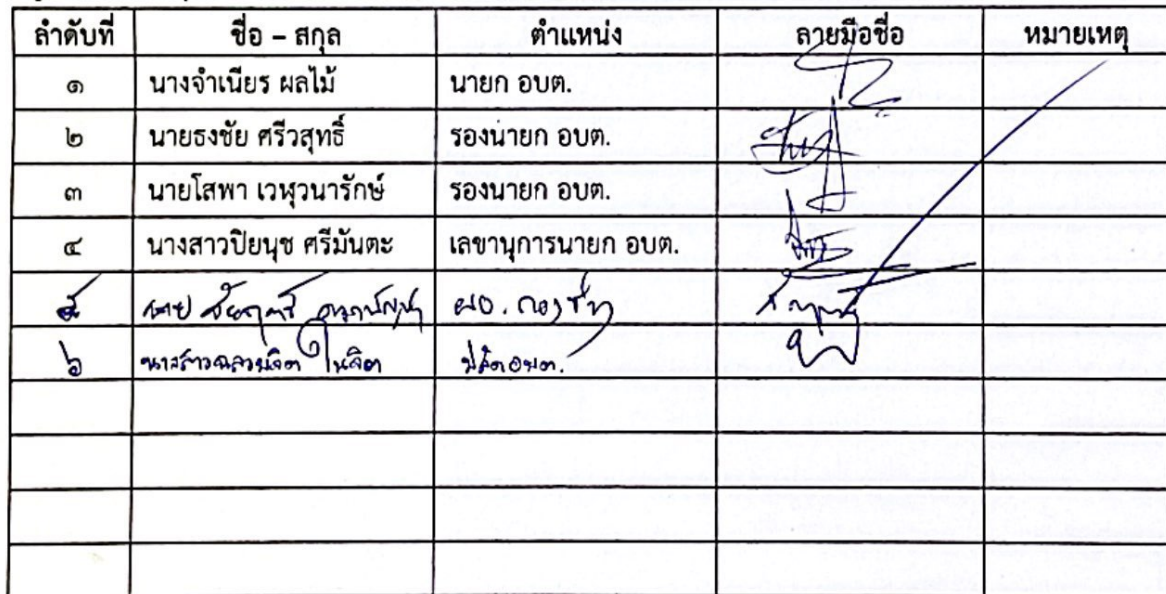 ลำดับที่ ชื่อ – สกุล ตำแหน่ง ลายมือชื่อ หมายเหตุ
๑ นางจำเนียร ผลไม้ นายก อบต.
๒ นายธงชัย ศรีวสุทธิ์ รองนายก อบต.
๓ นายโสพา เวฬุวนารักษ์ รองนายก อบต.
๔ นางสาวปิยนุช ศรีมันตะ เลขานุการนายก อบต.
๕ นาย ผอ. กองช่าง
๖ ปลัดอบต.